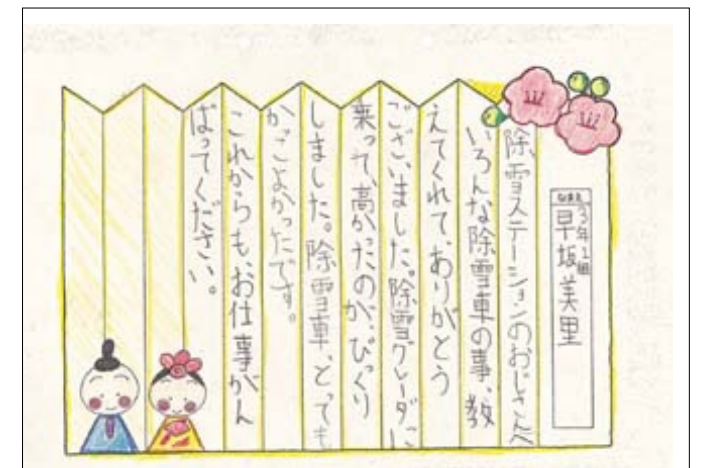 なまえ
3年1組
早坂美里
除雪ステーションのおじさんへ
いろんな除雪車の事、教
えてくれて、ありがとう
ございました。除雪グレーダに
乗って、高かったのが、びっくり
しました。除雪車、とっても
かっこよかったです。
これからも、お仕事がん
ばってください。